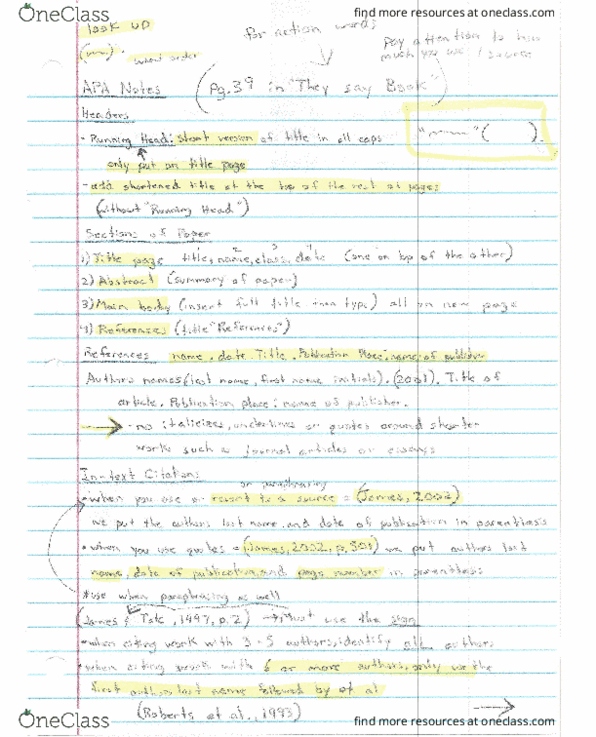 OneClass
find more resources at oneclass.com
look up
for action words
word order
pay attention to how
much you use 1 source
APA Notes
(Pg.39 in "They say Book")
Headers
- Running Head: short version of title in all caps
" " ( ).
only put on title page
- add shortened title at the top of the rest of pages
(without "Running Head")
Sections of Paper
1) Title page title, name, class, date (one on top of the other)
2) Abstract (summary of paper)
3) Main body (insert full title then type) all on new page
4) References (title "References")
References name. date. Title. Publication Place: name of publisher
Authors names (last name, first name initials). (2001). Title of
article. Publication place: name of publisher.
→ - no italicizes, underlines or quotes around shorter
works such as journal articles or essays
In-text Citations
or paraphrasing
• when you use or resort to a source = (James, 2002)
we put the authors last name, and date of publication in parenthesis
• when you use quotes = (James, 2002, p. 501) we put authors last
name, date of publication, and page number in parenthesis
*use when paraphrasing as well
(James & Tate, 1997, p. 2) → Must use the sign
• when citing work with 3-5 authors, identify all authors
• when citing work with 6 or more authors, only use the
first authors last name followed by et al
(Roberts et al., 1983)
→
OneClass
find more resources at oneclass.com